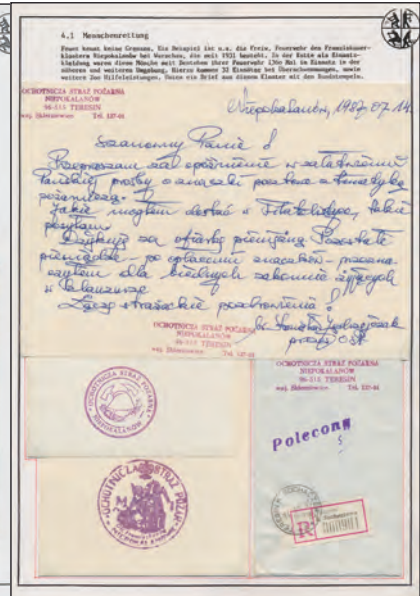 4.1 Menschenrettung
Feuer kennt keine Grenzen. Ein Beispiel ist u.a. die Freiw. Feuerwehr des Franziskaner-
klosters Niepokalanow bei Warschau, die seit 1931 besteht. In der Kutte als Einsatz-
kleidung waren diese Mönche seit Bestehen ihrer Feuerwehr mal im Einsatz in der
näheren und weiteren Umgebung. Hierzu kommen 32 Einsätze bei Überschwemmungen, sowie
weitere Hilfeleistungen. Unten ein Brief aus diesem Kloster mit den Rundstempeln.
OCHOTNICZA STRAŻ POŻARNA
NIEPOKALANÓW
96-515 TERESIN
woj. Skierniewice Tel. 127-61
Niepokalanów, 1987.07.14.
Szanowny Panie !
Przepraszam za opóźnienie w załatwieniu
Pańskiej prośby o znaczki pocztowe o tematyce
pożarniczej.
Jakie mogłem dostać w Filatelistyce, takie
posyłam.
Dziękuję za ofiarę pieniężną. Pozostałe
pieniądze - po opłaceniu znaczków -
dla biednych zakonnic żyjących
w
Łączę strażackie pozdrowienia !
OCHOTNICZA STRAŻ POŻARNA
NIEPOKALANÓW
96-515 TERESIN
woj. Skierniewice Tel. 127-61
prezes OSP
OCHOTNICZA STRAŻ POŻARNA
NIEPOKALANÓW
OCHOTNICZA STRAŻ POŻARNA
NIEPOKALANÓW
96-515 TERESIN
woj. Skierniewice Tel. 127-61
Polecony
OCHOTNICZA STRAŻ POŻAR
R